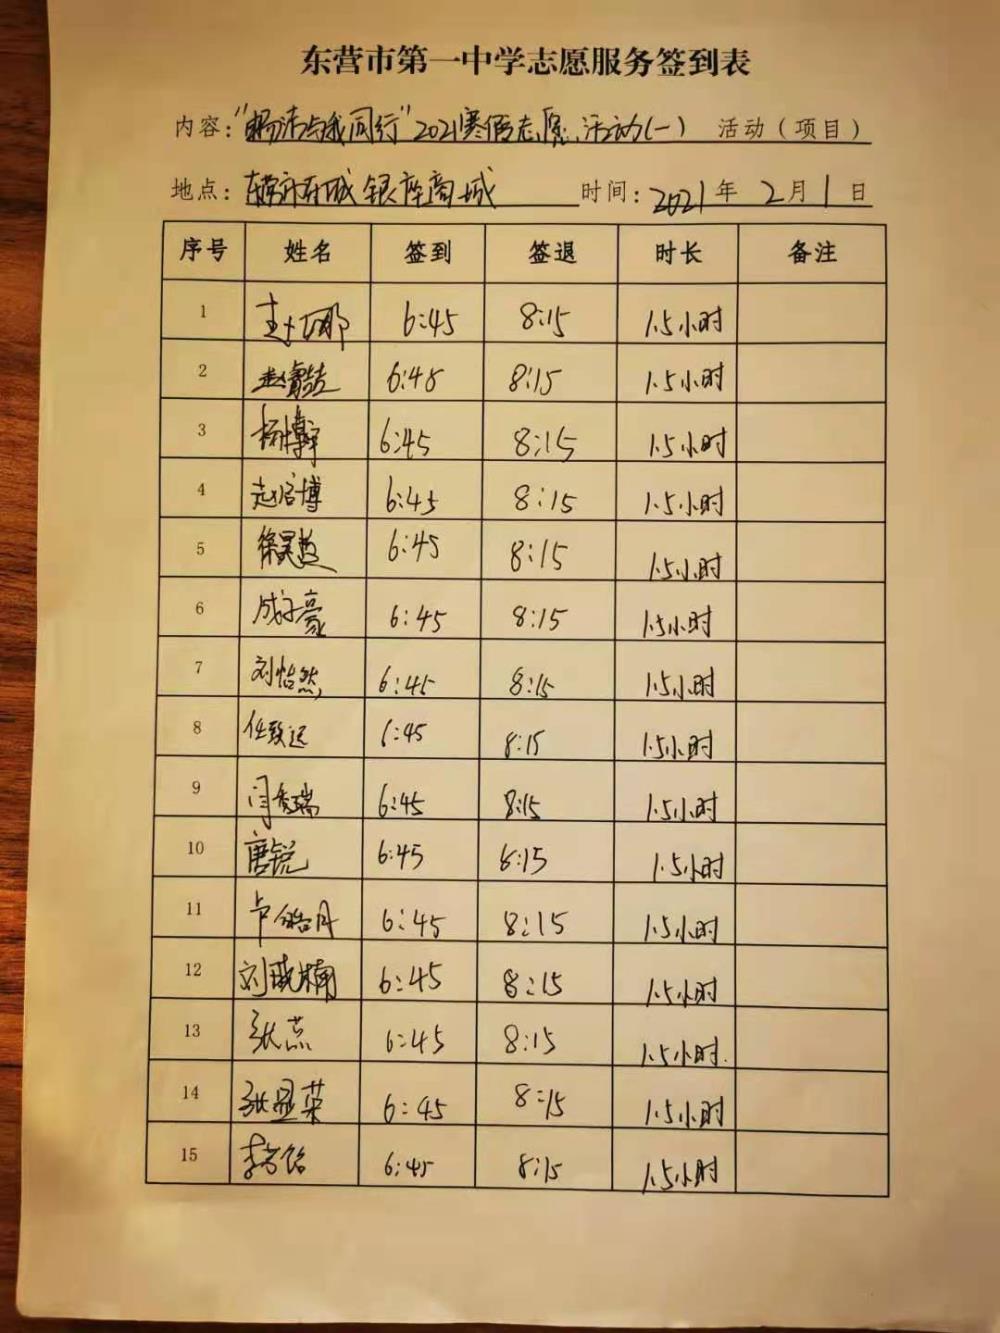 东营市第一中学志愿服务签到表
内容："杨沛与我同行"2021寒假志愿活动(一) 活动（项目）
地点：东营市东城银座商城 时间：2021年2月1日
序号 姓名 签到 签退 时长 备注
1 6:45 8:15 1.5小时
2 赵睿喆 6:45 8:15 1.5小时
3 杨博宇 6:45 8:15 1.5小时
4 赵启博 6:45 8:15 1.5小时
5 徐昊益 6:45 8:15 1.5小时
6 成子豪 6:45 8:15 1.5小时
7 刘怡然 6:45 8:15 1.5小时
8 任致远 6:45 8:15 1.5小时
9 闫秀瑞 6:45 8:15 1.5小时
10 唐锐 6:45 8:15 1.5小时
11 卢皓月 6:45 8:15 1.5小时
12 刘晓楠 6:45 8:15 1.5小时
13 张燕 6:45 8:15 1.5小时.
14 张显荣 6:45 8:15 1.5小时
15 6:45 8:15 1.5小时